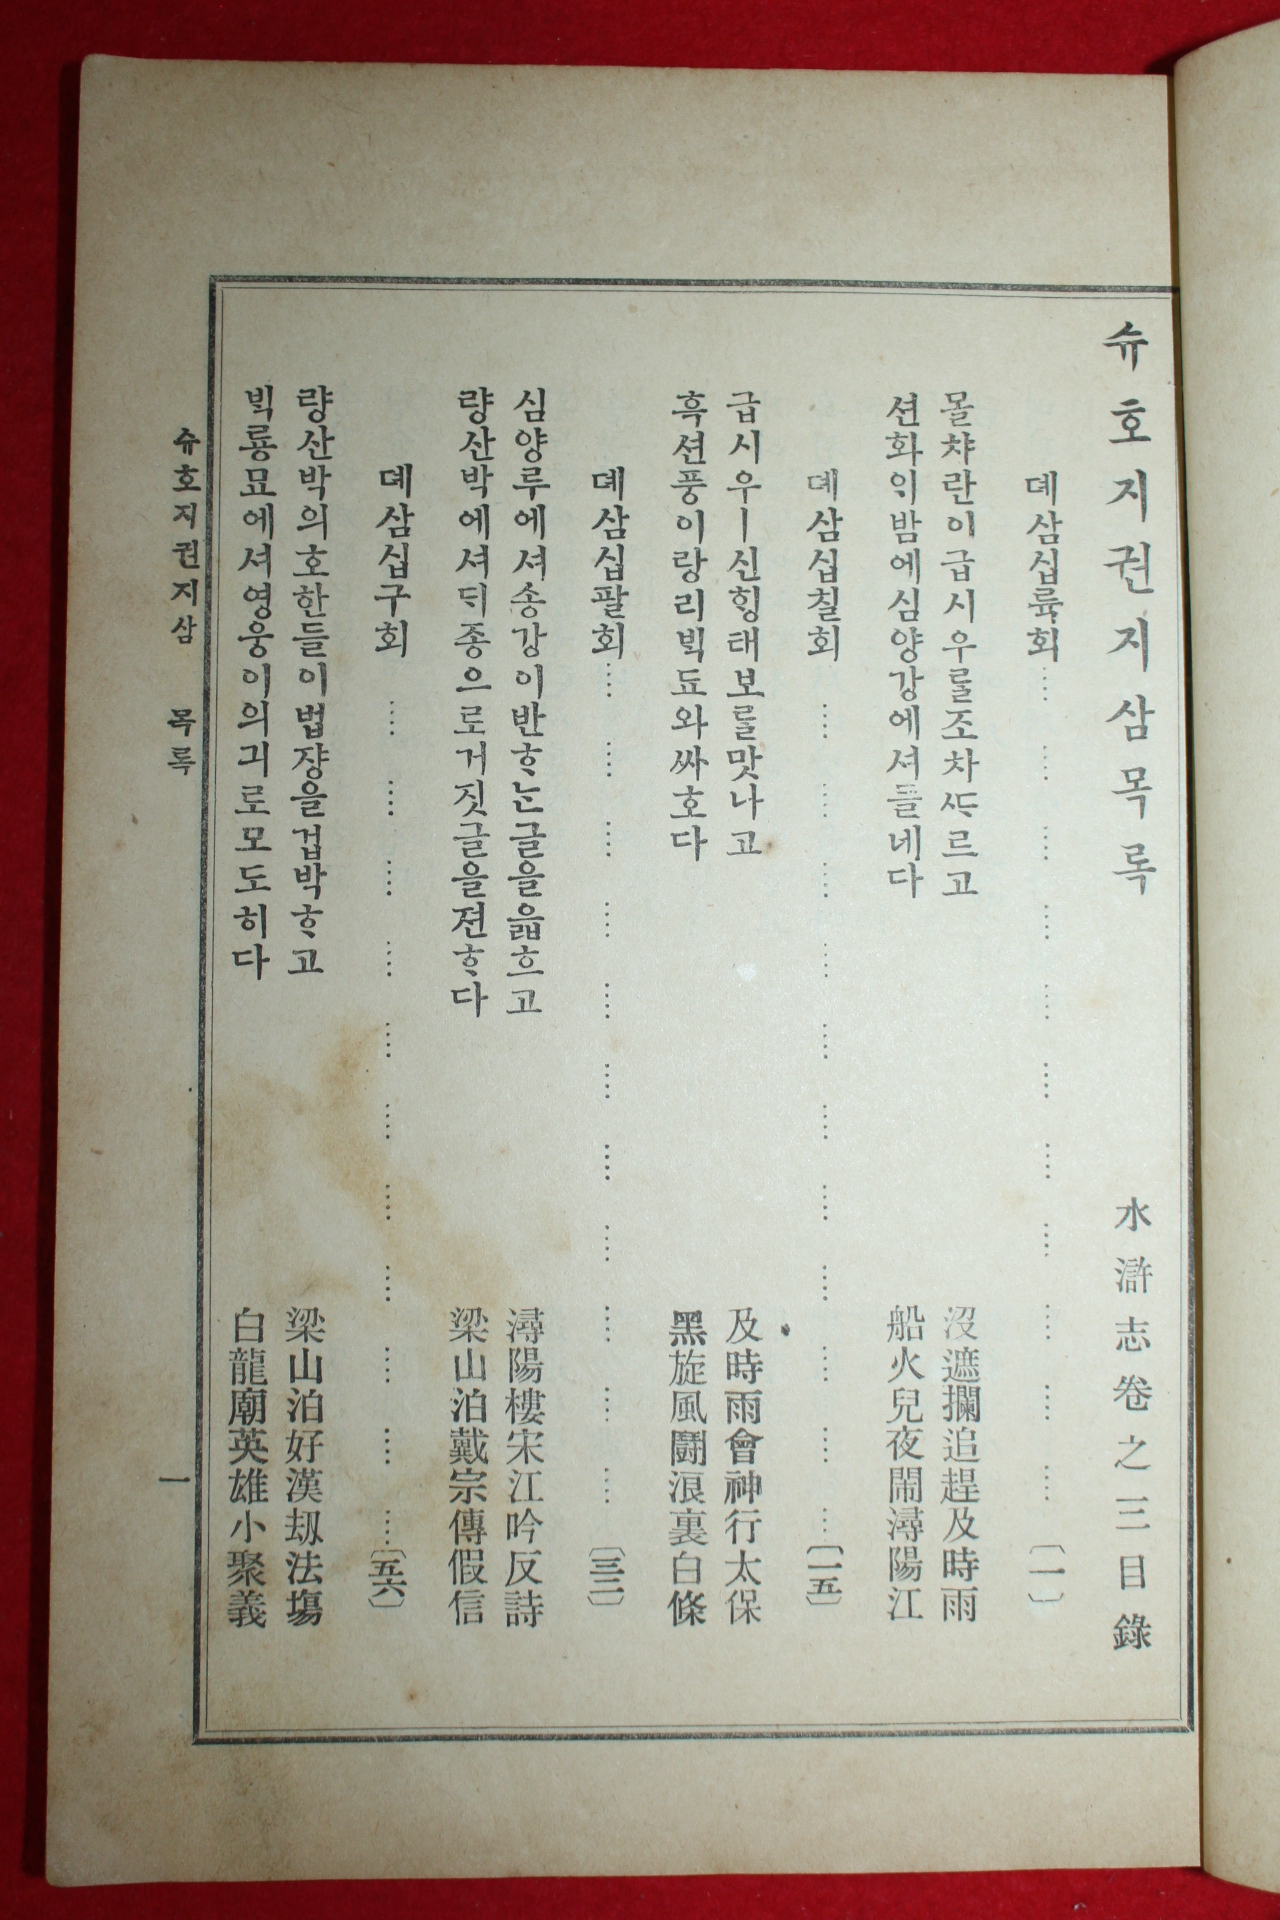 슈호지권지삼목록 水滸志卷之三目錄
뎨삼십륙회 ………… 〔一〕
몰챠란이급시우를조차ᄯᆞ르고 沒遮攔追趕及時雨
션화ᄋᆡ밤에심양강에셔들네다 船火兒夜鬧潯陽江
뎨삼십칠회 ………… 〔一五〕
급시우ㅣ신ᄒᆡᆼ태보를맛나고 及時雨會神行太保
흑션풍이랑리ᄇᆡᆨ됴와싸호다 黑旋風鬪浪裏白條
뎨삼십팔회 ………… 〔三二〕
심양루에셔송강이반ᄒᆞᄂᆞᆫ글을읇흐고 潯陽樓宋江吟反詩
량산박에셔ᄃᆡ종으로거짓글을젼ᄒᆞ다 梁山泊戴宗傳假信
뎨삼십구회 ………… 〔五六〕
량산박의호한들이법쟝을겁박ᄒᆞ고 梁山泊好漢刼法塲
ᄇᆡᆨ룡묘에셔영웅이의긔로모도히다 白龍廟英雄小聚義
슈호지권지삼 목록 一